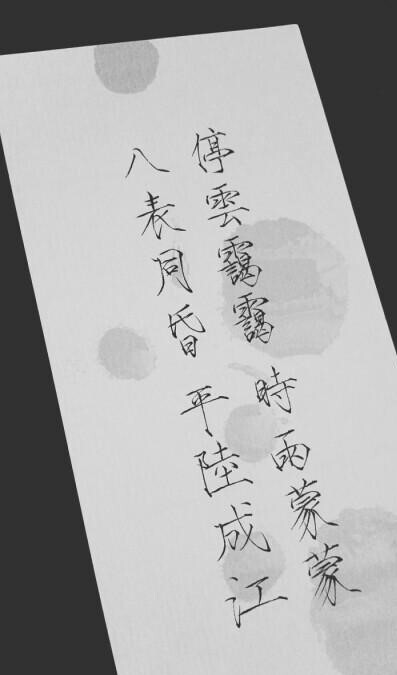 停雲靄靄時雨蒙蒙
八表同昏平陸成江